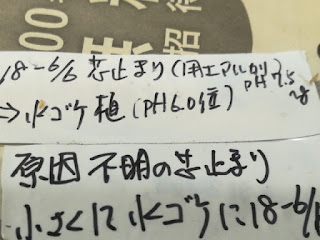 招
18-6/6 芯止まり(用土アルカリ
pH7.5
⇒水ゴケ植(PH6.0位)
原因不明の芯止まり
小さくに水ゴケに18-6/